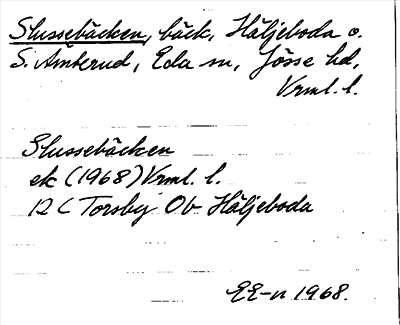 Slussebäcken, bäck, Häljeboda o.
S. Åmterud, Eda sn, Jösse hd,
Vrml. l.
Slussebäcken
ek (1968) Vrml. l.
12 C Torsby Ov Häljeboda
EE-n 1968.